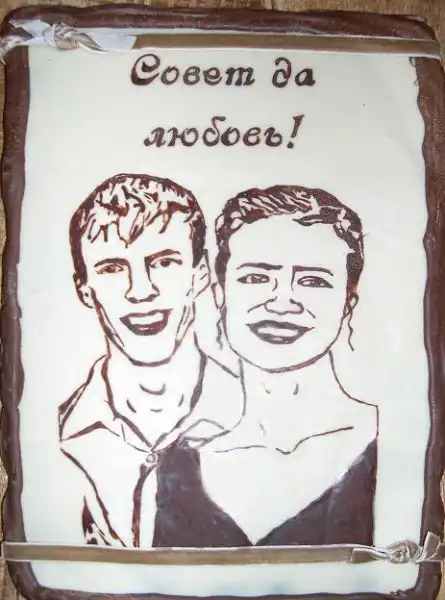 Совет да
любовь!